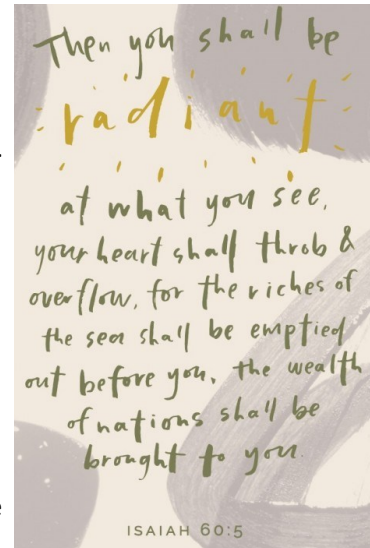 Then you shall be
radiant
at what you see,
your heart shall throb &
overflow, for the riches of
the sea shall be emptied
out before you, the wealth
of nations shall be
brought to you.
ISAIAH 60:5